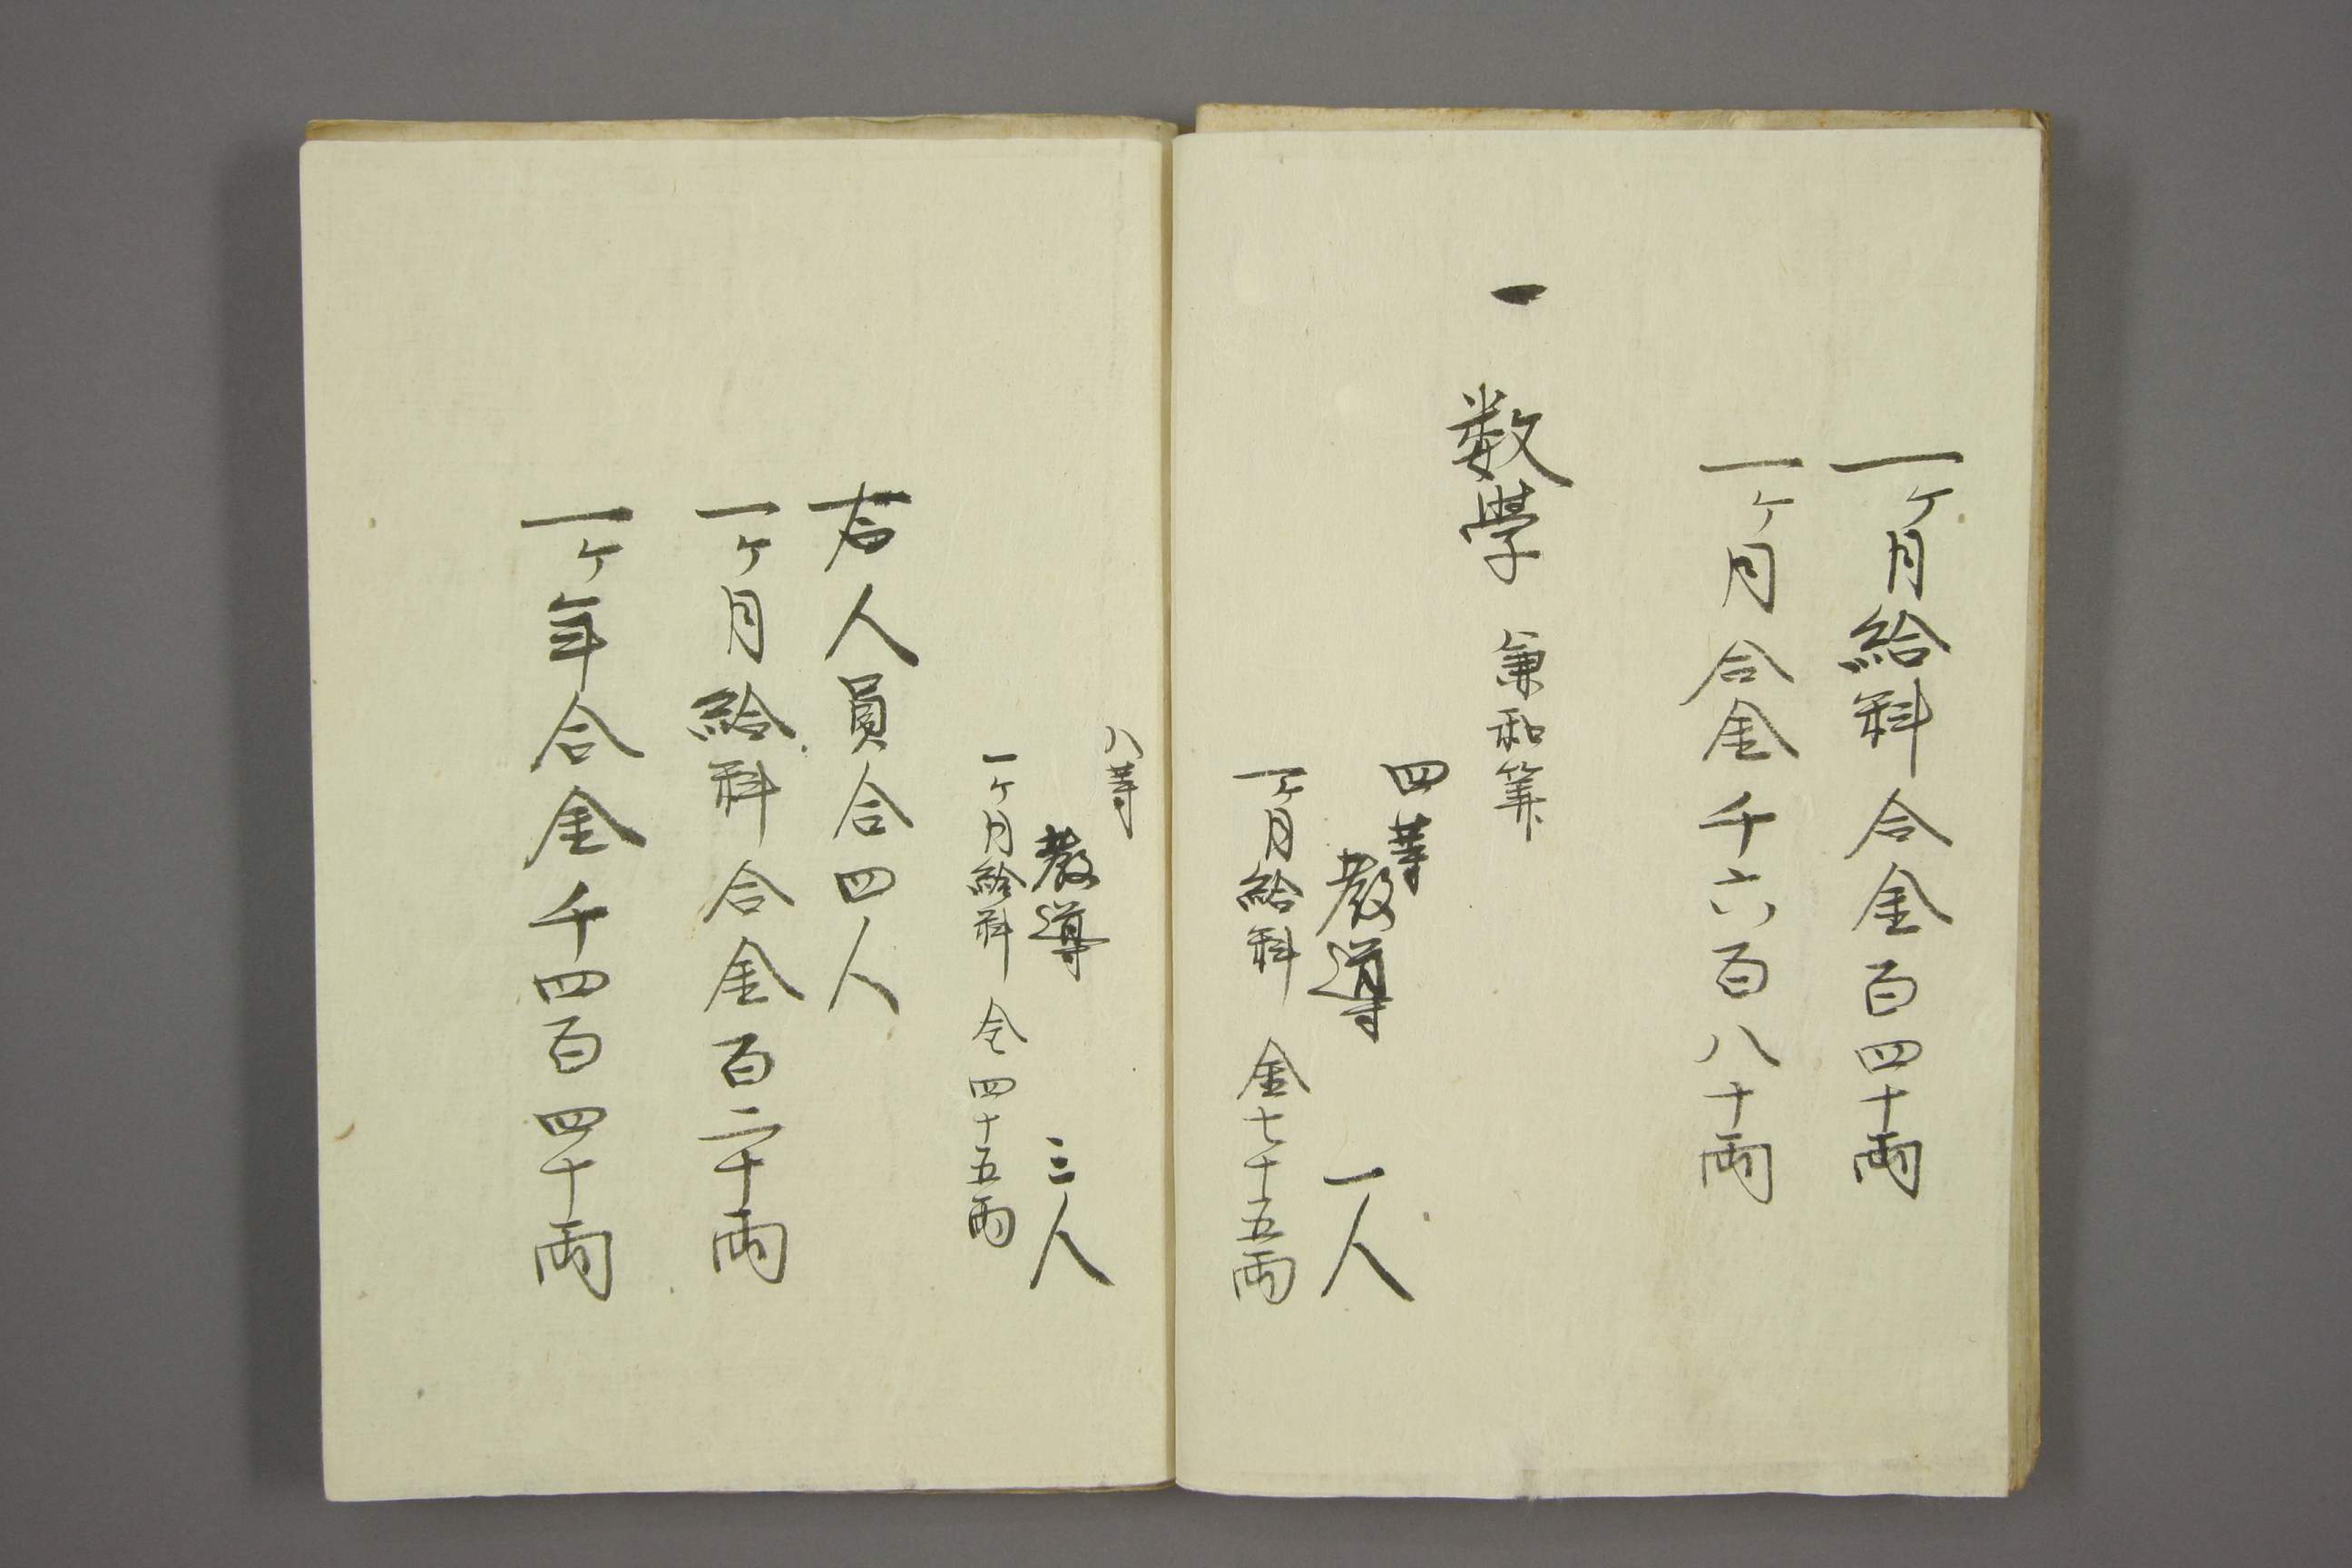 一ヶ月給料合金百四十両
一ヶ月合金千六百八十両
一 数學 兼和算
四等
教導 一人
一ヶ月給料 金七十五両
八等
教導 三人
一ヶ月給料 仝四十五両
右人員合四人
一ヶ月給料合金百二十両
一ヶ年合金千四百四十両